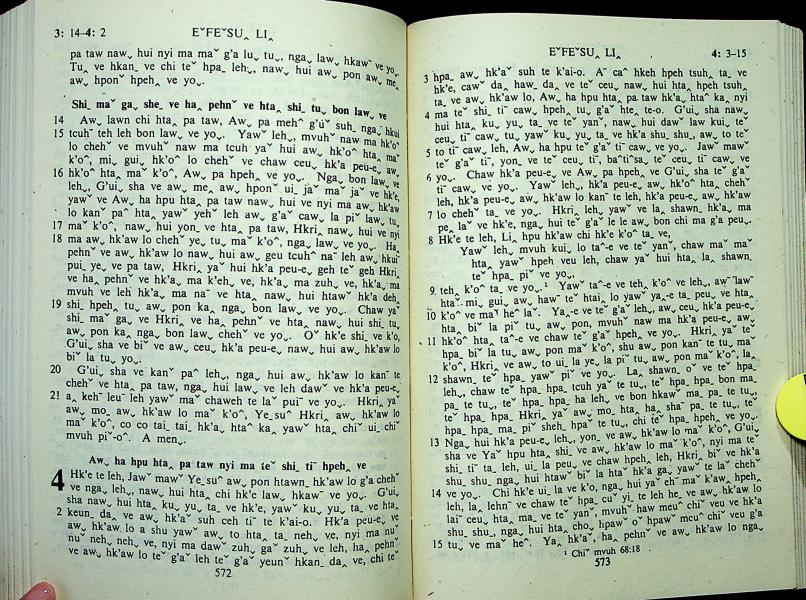 3: 14–4: 2 EˇFEˇSU‸ LI‸
pa taw naw ̬ hui nyi ma maˇ g'a lu ̬ tu ̬, nga ̬ law ̬ hkawˇ ve yo ̬.
Tu‸ ve hkan ̬ ve chi teˇ hpa ̬ leh ̬, naw ̬ hui aw ̬ pon aw ̬ me ̬
aw ̬ hponˇ hpeh ̬ ve yo ̬.
Shi_ maˇ ga ̬ she_ ve ha‸ pehnˇ ve hta‸ shi_ tu ̬ bon law ̬ ve
14 Aw ̬ lawn chi hta‸ pa taw, Aw ̬ pa mehˆ g'ǔˇ suh_ nga ̬ hkui
15 tcuhˉ teh leh bon law ̬ ve yo ̬. Yawˇ leh ̬, mvuhˇ naw ma hk'oˆ
lo chehˇ ve mvuhˇ naw ma tcuh yaˇ hui aw ̬ hk'oˆ hta‸ maˇ
k'oˆ, mi ̬ gui ̬ hk'oˆ lo chehˇ ve chaw ceu ̬ hk'a peu-e ̬ aw ̬
16 hk'oˆ hta‸ maˇ k'oˆ, Aw ̬ pa hpeh ̬ ve yo ̬. Nga ̬ bon law ̬ ve
leh ̬, G'ui ̬ sha ve aw ̬ me ̬ aw ̬ hponˇ ui ̬ jaˇ maˇ jaˇ ve hk'e,
yawˇ ve Aw ̬ ha hpu hta‸ pa taw naw ̬ hui ve nyi ma aw ̬ hk'aw
lo kanˉ paˆ hta‸ yawˇ yehˇ leh aw ̬ g'aˇ caw ̬ la piˇ law ̬ tu ̬
17 maˇ k'oˆ, naw ̬ hui yon ̬ ve hta‸ pa taw, Hkri ̬ naw ̬ hui ve nyi
18 ma aw ̬ hk'aw lo chehˇ ye ̬ tu ̬ maˇ k'oˆ, nga ̬ law ̬ ve yo ̬. Ha‸
pehnˇ ve aw ̬ hk'aw lo naw ̬ hui aw ̬ geu tcuhˆ naˉ leh aw ̬ hkuiˉ
pui_ ye ̬ ve pa taw, Hkri ̬ yaˇ hui hk'a peu-e ̬ geh teˇ geh Hkri ̬
ve ha‸ pehnˇ ve hk'a ̬ ma k'eh ̬ ve, hk'a ̬ ma zuh ̬ ve, hk'a ̬ ma
mvuh ve leh hk'a ̬ ma naˉ ve hta‸ naw ̬ hui htawˇ hk'a deh ̬
19 shi_ hpeh ̬ tu ̬ aw ̬ pon ka ̬ nga ̬ bon law ̬ ve yo ̬. Chaw yaˇ
shi_ maˇ ga ̬ ve Hkri ̬ ve ha‸ pehnˇ ve hta‸ naw ̬ hui shi_ tu ̬
aw ̬ pon ka ̬ nga ̬ bon law ̬ chehˇ ve yo ̬. Oˇ hk'e shi_ ve k'o ̬
G'ui ̬ sha ve biˇ ve aw ̬ ceu ̬ hk'a peu-e ̬ naw ̬ hui aw ̬ hk'aw lo
biˇ la tu ̬ yo ̬.
20 G'ui ̬ sha ve kanˉ paˆ leh ̬, nga ̬ hui aw ̬ hk'aw lo kanˉ te
chehˇ ve hta‸ pa taw, nga ̬ hui law ̬ ve leh dawˇ ve hk'a peu-e ̬
21 a_ kehˉ leuˉ leh yawˇ maˇ chaweh te laˇ puiˉ ve yo ̬. Hkri ̬ yaˇ
aw ̬ mo ̬ aw ̬ hk'aw lo maˇ k'oˆ, Ye ̬suˆ Hkri ̬ aw ̬ hk'aw lo
maˇ k'oˆ, co co tai_ tai_ hk'a‸ htaˆ ka ̬ yawˇ hta‸ chiˇ ui ̬ chiˇ
mvuh piˇ-oˆ. A men ̬.
Aw ̬ ha hpu hta‸ pa taw nyi ma teˇ shi_ tiˉ hpeh ̬ ve
4 Hk'e te leh, Jawˇ mawˇ Ye ̬suˆ aw ̬ pon htawn_ hk'aw lo g'a chehˇ
ve nga ̬ leh ̬, naw ̬ hui hta‸ chi hk'e law ̬ hkawˇ ve yo ̬. G'ui ̬
sha naw ̬ hui hta‸ ku ̬ yu ̬ ta ̬ ve hk'e, yawˇ ku ̬ yu ̬ ta ̬ ve hta‸
2 keun_ da ̬ ve aw ̬ hk'aˇ suh ceh tiˉ te k'ai-o. Hk'a peu-e ̬ ve
aw ̬ hk'aw ̬ lo a shu yawˇ aw ̬ to hta‸ ta_ neh ̬ ve, nyi ma nuˇ
nuˇ neh ̬ neh ̬ ve, nyi ma dawˇ zuh ̬ gaˇ zuh ̬ ve leh, ha‸ pehnˇ
ve aw ̬ hk'aw lo teˇ g'aˇ leh teˇ g'aˇ yeunˇ hkan_ da ̬ ve, chi teˇ
572
EˇFEˇSU‸ LI‸ 4: 3–15
3 hpa‸ aw ̬ hk'aˇ suh te k'ai-o. Aˉ caˆ hkeh hpeh tsuh‸ ta‸ ve
hk'e, cawˇ da ̬ haw ̬ da ̬ ve teˇ ceu ̬ naw ̬ hui hta‸ hpeh tsuh‸
ta‸ ve aw ̬ hk'aw lo, Aw ̬ ha hpu hta‸ pa taw hk'a‸ htaˆ ka ̬ nyi
4 ma teˇ shi_ tiˉ caw ̬ hpeh ̬ tu ̬ g'aˇ hte ̬ te-o. G'ui ̬ sha naw ̬
hui hta‸ ku ̬ yu ̬ ta‸ ve teˇ yanˇ, naw ̬ hui dawˇ law kui ̬ teˇ
ceu ̬ tiˉ caw ̬ tu ̬ yawˇ ku ̬ yu ̬ ta‸ ve hk'a shu_ shu_, aw ̬ to teˇ
5 to tiˉ caw ̬ leh, Aw ̬ ha hpu teˇ g'aˇ tiˉ caw ̬ ve yo ̬. Jawˇ mawˇ
teˇ g'aˇ tiˉ, yon ̬ ve teˇ ceu ̬ tiˉ, baˆtiˆsa ̬ teˇ ceu ̬ tiˉ caw ̬ ve
6 yo ̬. Chaw hk'a peu-e ̬ ve Aw ̬ pa hpeh ̬ ve G'ui ̬ sha teˇ g'aˇ
tiˉ caw ̬ ve yo ̬. Yawˇ leh ̬, hk'a peu-e ̬ aw ̬ hk'oˆ hta‸ chehˇ
leh, hk'a peu-e ̬ aw ̬ hk'aw lo kanˉ te leh, hk'a peu-e ̬ aw ̬ hk'aw
7 lo chehˇ ta‸ ve yo ̬. Hkri ̬ leh ̬, yawˇ ve la‸ shawn_ hk'a ̬ ma
pe‸ laˇ ve hk'e, nga ̬ hui teˇ g'aˇ le le aw ̬ bon chi ma g'a peu ̬.
8 Hk'e te leh, Li‸ hpu hk'aw chi hk'e k'oˆ ta‸ ve,
Yawˇ leh ̬, mvuh kui ̬ lo taˆ-e ve teˇ yanˇ, chaw maˇ maˇ
hta‸ yawˇ hpeh veu leh, chaw yaˇ hui hta‸ la‸ shawn_
teˇ hpa‸ piˇ ve yo ̬,
9 teh‸ k'oˆ ta‸ ve yo ̬.¹ Yawˇ taˆ-e ve teh‸ k'oˆ ve leh ̬, awˉ lawˉ
htaˇ mi ̬ gui ̬ aw ̬ hawˉ teˇ htai ̬ lo yawˇ ya‸-e ta‸ peu ̬ ve hta‸
10 k'oˆ ve maˇ heˆ laˇ. Ya‸-e ve teˇ g'aˇ leh ̬, aw ̬ ceu ̬ hk'a peu-e ̬
hta‸ biˇ la piˇ tu ̬ aw ̬ pon, mvuhˇ naw ma hk'a peu-e ̬ aw ̬
11 hk'oˆ hta‸ taˆ-e ve chaw teˇ g'aˇ hpeh ̬ ve yo ̬. Hkri ̬ yaˇ te
hpa‸ biˇ la tu ̬ aw ̬ pon maˇ k'oˆ, shu aw ̬ pon kanˉ te tu ̬ maˇ
k'oˆ, Hkri ̬ ve aw ̬ to ui ̬ la ye ̬ la piˇ tu ̬ aw ̬ pon maˇ k'oˆ, la‸
12 shawn_ teˇ hpa‸ yawˇ piˇ ve yo ̬. La‸ shawn_ oˇ ve teˇ hpa‸
leh ̬, chaw teˇ hpa_ hpa_ tcuh yaˇ te tu ̬, teˇ hpa_ hpa_ bon ma_
pa_ te tu ̬, teˇ hpa_ hpa_ ha leh ̬ ve bon hkawˇ ma_ pa_ te tu ̬,
teˇ hpa_ hpa_ Hkri ̬ yaˇ aw ̬ mo ̬ hta‸ ha‸ shaˉ pa_ te tu ̬, teˇ
hpa_ hpa_ ma_ piˇ sheh_ hpaˇ te tu ̬, chi teˇ hpa_ hpeh ̬ ve yo ̬.
13 Nga ̬ hui hk'a peu-e ̬ leh ̬, yon ̬ ve aw ̬ hk'aw lo maˇ k'oˆ, G'ui ̬
sha ve Yaˇ hpu hta‸ shi_ ve aw ̬ hk'aw lo maˇ k'oˆ, nyi ma teˇ
shi_ tiˉ ta_ leh, ui ̬ la peu ̬ ve chaw hpeh ̬ leh, Hkri ̬ biˇ ve hk'a
shu_ shu_ nga ̬ hui htawˇ biˇ la htaˇ hk'a ga ̬ yawˇ te laˇ chehˇ
14 ve yo ̬. Chi hk'e ui ̬ la ve k'o ̬ nga ̬ hui yaˇ ehˉ maˇ k'aw ̬ hpeh ̬
leh, la ̬ lehnˇ ve chaw teˇ hpa_ cuˇ yi_ te leh he_ ve aw ̬ hk'aw lo
laiˉ ceu ̬ hta‸ ma ̬ ve teˇ yanˇ, mvuhˇ haw meuˆ chiˇ veu ve hk'a
shu_ shu_, nga ̬ hui hta‸ cho ̬ hpawˇ oˇ hpawˇ meuˆ chiˇ veu g'a
15 tu ̬ ve maˇ heˆ. Ya‸ hk'aˇ ̬ ha‸ pehnˇ ve aw ̬ hk'aw lo nga ̬
¹ Chiˇ mvuh 68:18
573